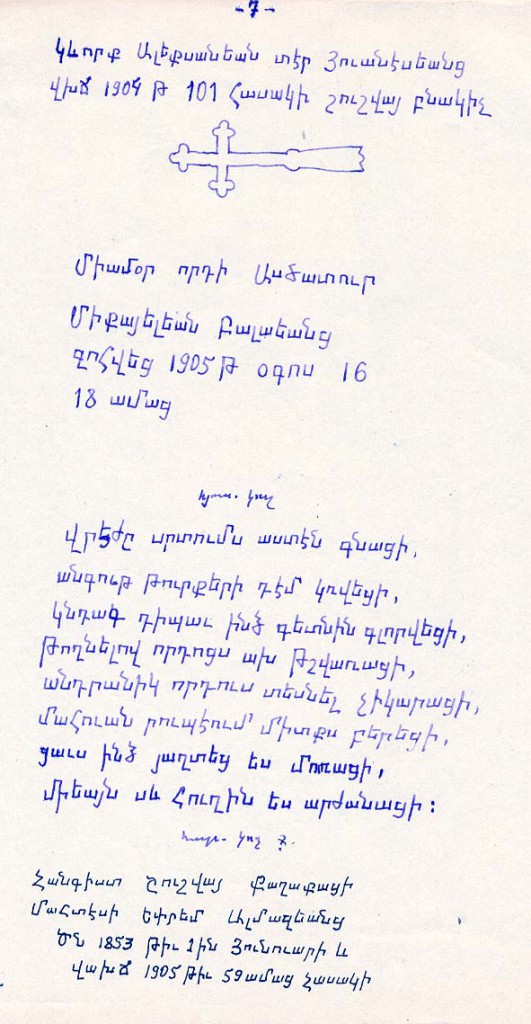 -7-
Կևորք Ալեքսանեան տէր Յուանէսեանց
վխճ 1904 թ 101 հասակի շուշվայ բնակիչ
Միամօր որդի Ասծատուր
Միքայելեան Բալաեանց
զոհվեց 1905 թ օգոս 16
18 ամաց
հյուս. կող
վրէժը սրտումս աստէն գնացի,
անգութ թուրքերի դէմ կռվեցի,
կնդագ դիպաւ ինձ գետնին գլորվեցի,
թողնելով որդոցս ախ թշվառացի,
անդրանիկ որդուս տեսնել չիկարացի,
մահուան րոպէում միտքս բերեցի,
ցաւս ինձ յաղտեց ես մոռացի,
միեայն սև հուղին ես արժանացի:
հար. կող
Հանգիստ Շուշվայ քաղաքացի
մահտէսի Եփրեմ Ալմազեանց
ծն 1853 թիւ 1ին Յունուարի և
վախճ 1905 թիւ 59 ամաց հասակի